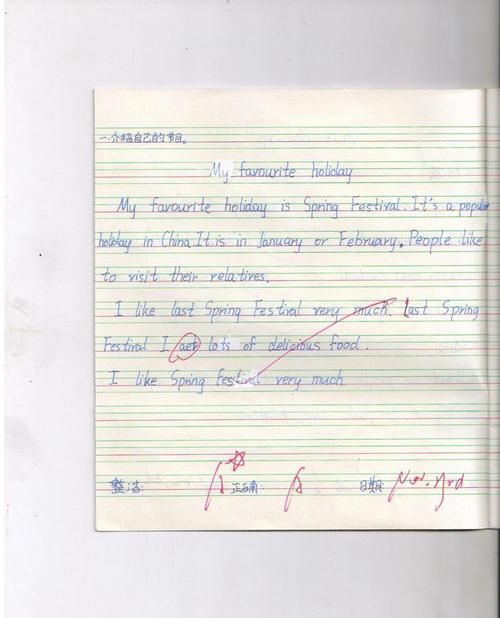 一.介绍自己的节日。
My favourite holiday
My favourite holiday is Spring Festival. It's a popular
holiday in China. It is in January or February. People like
to visit their relatives.
I like last Spring Festival very much. Last Spring
Festival I aet lots of delicious food.
I like Spring Festival very much.
整洁: A 正确: A 日期: Nov. 3rd